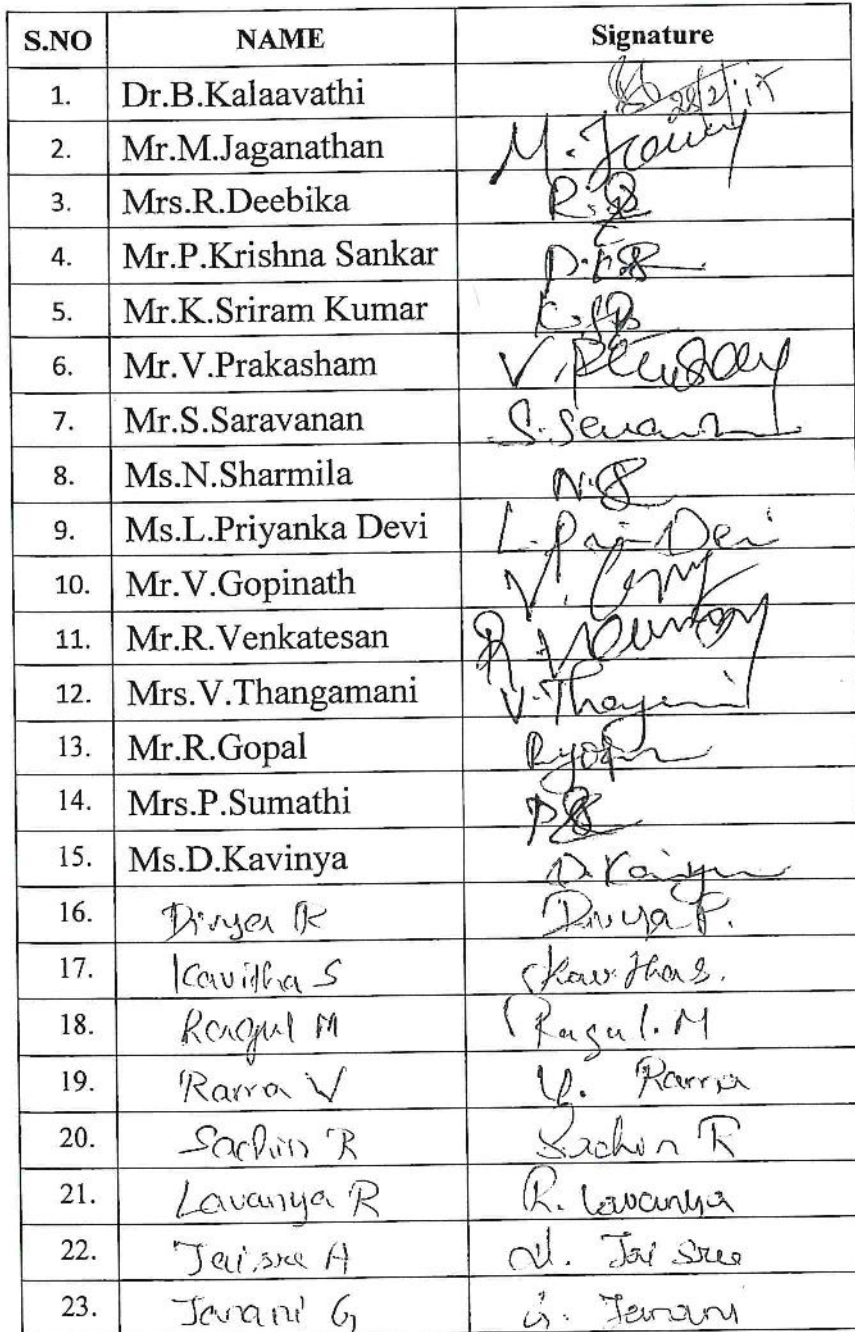 S.NO NAME Signature
1. Dr.B.Kalaavathi 28/2/17
2. Mr.M.Jaganathan M.
3. Mrs.R.Deebika R.
4. Mr.P.Krishna Sankar P.
5. Mr.K.Sriram Kumar K.
6. Mr.V.Prakasham V.
7. Mr.S.Saravanan S.
8. Ms.N.Sharmila N.
9. Ms.L.Priyanka Devi L. Devi
10. Mr.V.Gopinath V.
11. Mr.R.Venkatesan R.
12. Mrs.V.Thangamani V.
13. Mr.R.Gopal
14. Mrs.P.Sumathi P
15. Ms.D.Kavinya D. Kavinya
16. Divya R Divya P.
17. Kavitha S Kavitha S.
18. Ragul M Ragul. M
19. Rama V V. Rama
20. Sachin R Sachin R
21. Lavanya R R. Lavanya
22. Jaisree A A. Jai Sree
23. Janani G G. Janani